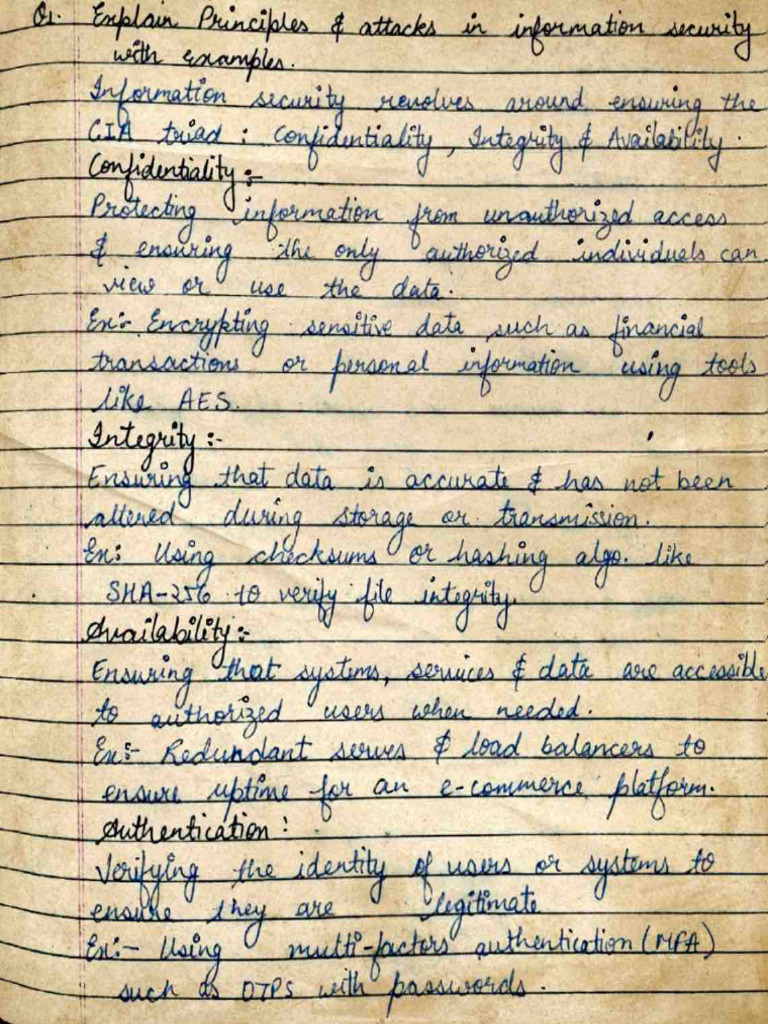 Q1. Explain Principles & attacks in information security
with examples.
Information security revolves around ensuring the
CIA triad : Confidentiality, Integrity & Availability.
Confidentiality :-
Protecting information from unauthorized access
& ensuring the only authorized individuals can
view or use the data.
Ex:- Encrypting sensitive data such as financial
transactions or personal information using tools
like AES.
Integrity :-
Ensuring that data is accurate & has not been
altered during storage or transmission.
Ex: Using checksums or hashing algo. like
SHA-256 to verify file integrity.
Availability :-
Ensuring that systems, services & data are accessible
to authorized users when needed.
Ex:- Redundant serves & load balancers to
ensure uptime for an e-commerce platform.
Authentication :
Verifying the identity of users or systems to
ensure they are legitimate
Ex:- Using multi-factors authentication (MFA)
such as OTPS with passwords.